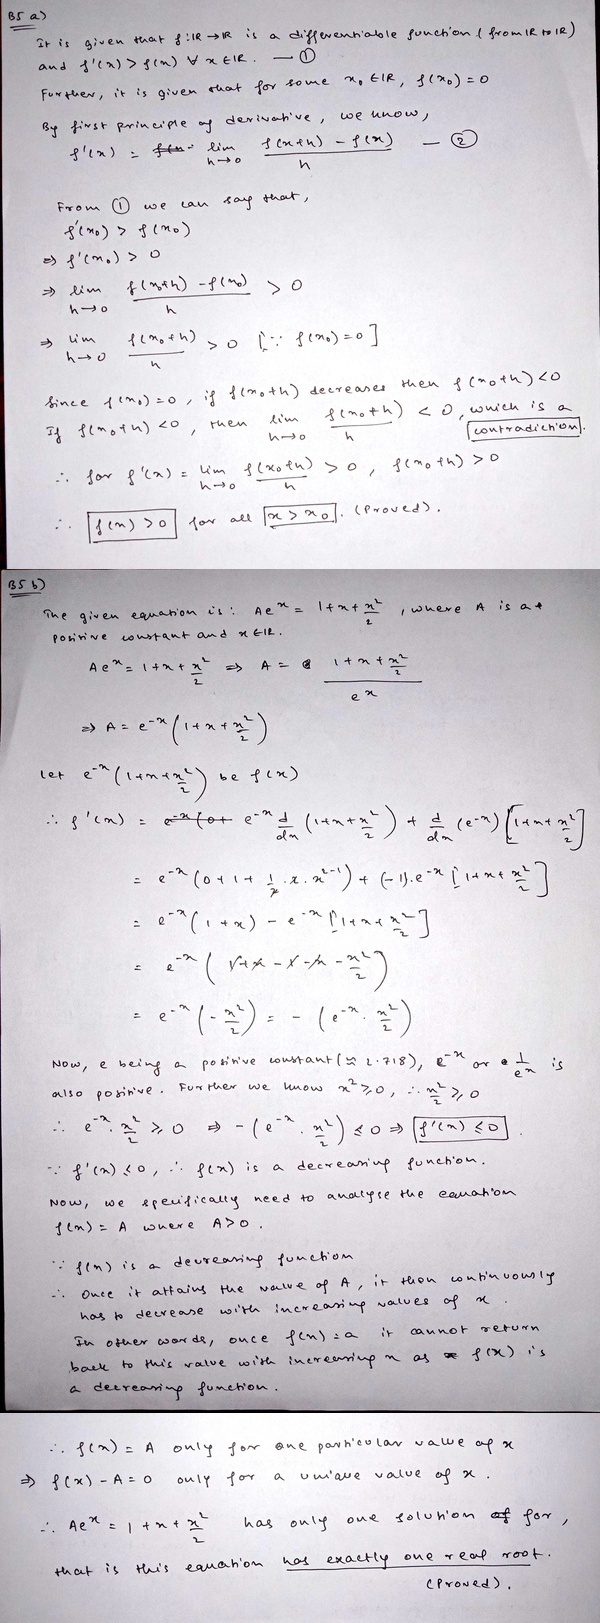 B5 a)
It is given that f: ℝ → ℝ is a differentiable function (from ℝ to ℝ)
and f'(x) > f(x) ∀ x ∈ ℝ. — ①
Further, it is given that for some x₀ ∈ ℝ, f(x₀) = 0
By first principle of derivative, we know,
f'(x) = lim h→0 (f(x+h) - f(x))/h — ②
From ① we can say that,
f'(x₀) > f(x₀)
⇒ f'(x₀) > 0
⇒ lim h→0 (f(x₀+h) - f(x₀))/h > 0
⇒ lim h→0 f(x₀+h)/h > 0 [∵ f(x₀) = 0]
Since f(x₀) = 0, if f(x₀+h) decreases then f(x₀+h) < 0
If f(x₀+h) < 0, then lim h→0 f(x₀+h)/h < 0, which is a
contradiction.
∴ for f'(x) = lim h→0 f(x₀+h)/h > 0, f(x₀+h) > 0
∴ f(x) > 0 for all x > x₀. (Proved).
B5 b)
The given equation is: Ae^x = 1+x+x²/2, where A is a +
positive constant and x ∈ ℝ.
Ae^x = 1+x+x²/2 ⇒ A = (1+x+x²/2)/e^x
⇒ A = e^-x (1+x+x²/2)
Let e^-x (1+x+x²/2) be f(x)
∴ f'(x) = e^-x (0+ e^-x d/dx (1+x+x²/2) + d/dx (e^-x) [1+x+x²/2]
= e^-x (0+1+ 1/2 . 2 . x^2-1) + (-1).e^-x [1+x+x²/2]
= e^-x (1+x) - e^-x [1+x+x²/2]
= e^-x (1+x-1-x-x²/2)
= e^-x (-x²/2) = - (e^-x . x²/2)
Now, e being a positive constant (≈ 2.718), e^-x or 1/e^x is
also positive. Further we know x² ≥ 0, ∴ x²/2 ≥ 0
∴ e^-x . x²/2 ≥ 0 ⇒ -(e^-x . x²/2) ≤ 0 ⇒ f'(x) ≤ 0.
∵ f'(x) ≤ 0, ∴ f(x) is a decreasing function.
Now, we specifically need to analyse the equation
f(x) = A where A > 0.
∵ f(x) is a decreasing function
∴ Once it attains the value of A, it then continuously
has to decrease with increasing values of x.
In other words, once f(x) = a it cannot return
back to this value with increasing x as f(x) is
a decreasing function.
∴ f(x) = A only for one particular value of x
⇒ f(x) - A = 0 only for a unique value of x.
∴ Ae^x = 1+x+x²/2 has only one solution of for,
that is this equation has exactly one real root.
(Proved).